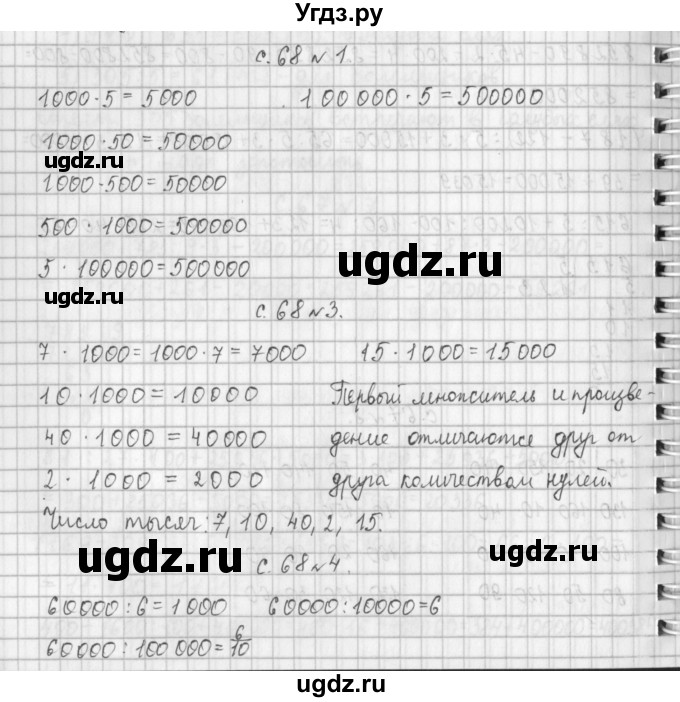 Угдз.ру
с. 68 № 1.
1000·5=5000 100 000·5=500000
1000·50=50000
ugdz.ru
1000·500=50000
500·1000=500000
5·100000=500000
ugdz.ru
ugdz.ru
с. 68 №3.
7·1000=1000·7=7000 15·1000=15000
10·1000=10000 Первый множитель и произве-
40·1000=40000 дение отличаются друг от
2·1000=2000 друга количеством нулей.
Число тысяч: 7, 10, 40, 2, 15.
ugdz.ru
ugdz.ru
с. 68 №4.
60000:6=1000 60000:10000=6
60000:100 000=6/10
ugdz.ru